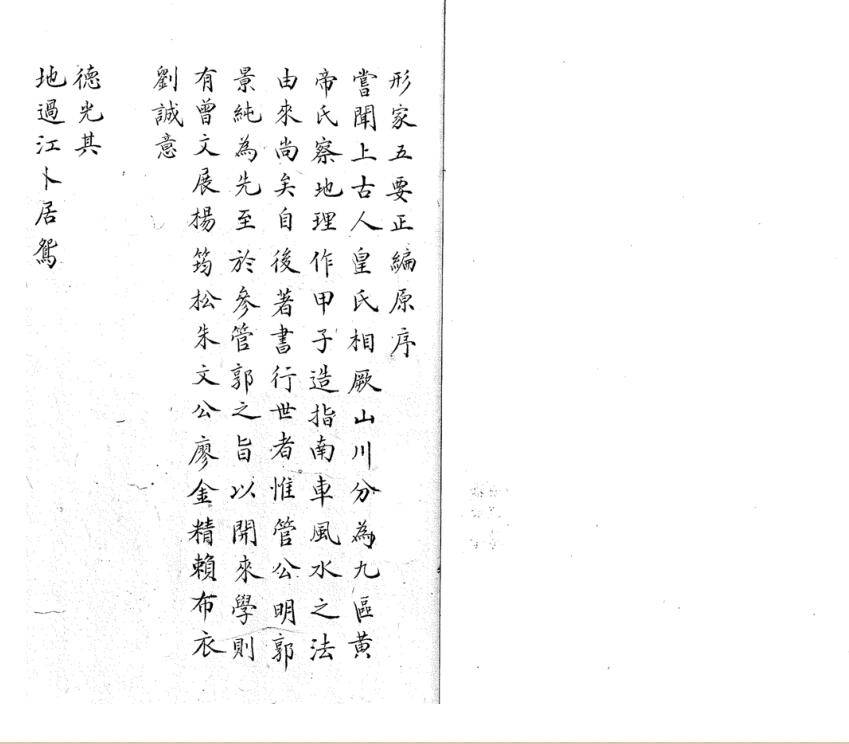 形家五要正編原序
嘗聞上古人皇氏相厥山川分為九區黃
帝氏察地理作甲子造指南車風水之法
由來尚矣自後著書行世者惟管公明郭
景純為先至於參管郭之旨以開來學則
有曾文展楊筠松朱文公廖金精賴布衣
劉誠意
德光其
地過江卜居鴛